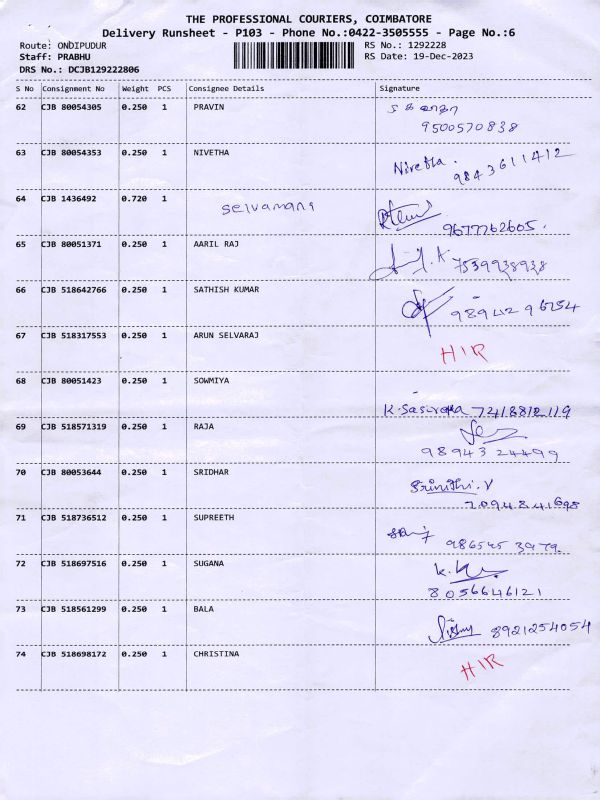 THE PROFESSIONAL COURIERS, COIMBATORE
Delivery Runsheet - P103 - Phone No.:0422-3505555 - Page No.:6
Route: ONDIPUDUR RS No.: 1292228
Staff: PRABHU RS Date: 19-Dec-2023
DRS No.: DCJB129222806
S No Consignment No Weight PCS Consignee Details Signature
62 CJB 80054305 0.250 1 PRAVIN
9500570838
63 CJB 80054353 0.250 1 NIVETHA Nivetha.
9843611412
64 CJB 1436492 0.720 1 Selvamani
9677762605.
65 CJB 80051371 0.250 1 AARIL RAJ
7539938938
66 CJB 518642766 0.250 1 SATHISH KUMAR
67 CJB 518317553 0.250 1 ARUN SELVARAJ HIR
68 CJB 80051423 0.250 1 SOWMIYA
69 CJB 518571319 0.250 1 RAJA
9894324499
70 CJB 80053644 0.250 1 SRIDHAR Srinithi.V
71 CJB 518736512 0.250 1 SUPREETH
72 CJB 518697516 0.250 1 SUGANA
8056646121
73 CJB 518561299 0.250 1 BALA
8921254054
74 CJB 518698172 0.250 1 CHRISTINA HIR